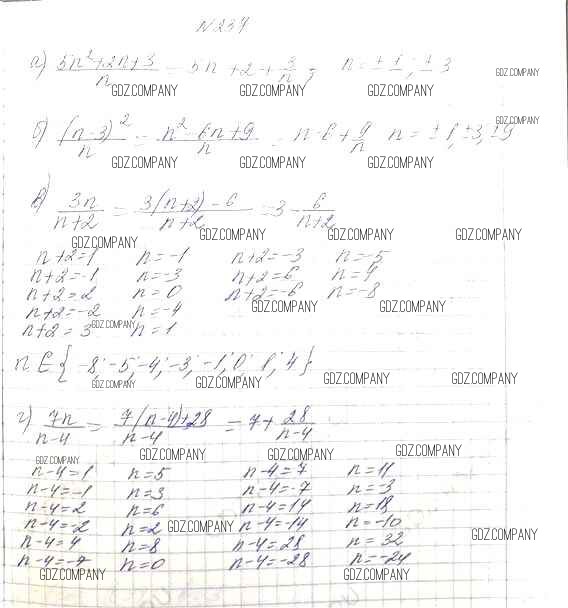 N 237
а) 5n²+2n+3 / n = 5n + 2 + 3/n ; n = ±1; ±3
GDZ.COMPANY
GDZ.COMPANY GDZ.COMPANY GDZ.COMPANY
GDZ.COMPANY
б) (n-3)² / n = n²-6n+9 / n = n-6+9/n n = ±1, ±3, ±9
GDZ.COMPANY GDZ.COMPANY GDZ.COMPANY
в) 3n / n+2 = 3(n+2)-6 / n+2 = 3 - 6 / n+2
GDZ.COMPANY GDZ.COMPANY GDZ.COMPANY GDZ.COMPANY
n+2=1 n=-1 n+2=-3 n=-5
n+2=-1 n=-3 n+2=6 n=4
n+2=2 n=0 n+2=-6 n=-8
n+2=-2 n=-4 GDZ.COMPANY GDZ.COMPANY
n+2=3 GDZ.COMPANY n=1
n ∈ {-8; -5; -4; -3; -1; 0; 1; 4}
GDZ.COMPANY GDZ.COMPANY GDZ.COMPANY GDZ.COMPANY
г) 7n / n-4 = 7(n-4)+28 / n-4 = 7 + 28 / n-4
GDZ.COMPANY GDZ.COMPANY GDZ.COMPANY GDZ.COMPANY
n-4=1 n=5 n-4=7 n=11
n-4=-1 n=3 n-4=-7 n=-3
n-4=2 n=6 n-4=14 n=18
n-4=-2 n=2 GDZ.COMPANY n-4=-14 n=-10 GDZ.COMPANY
n-4=4 n=8 n-4=28 n=32
n-4=-4 n=0 n-4=-28 n=-24
GDZ.COMPANY GDZ.COMPANY